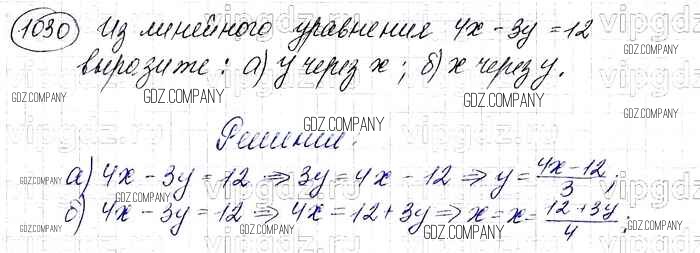 1030 Из линейного уравнения 4x - 3y = 12
выразите: а) y через x; б) x через y.
GDZ.COMPANY GDZ.COMPANY GDZ.COMPANY GDZ.COMPANY
GDZ.COMPANY
Решение.
а) 4x - 3y = 12 => 3y = 4x - 12 => y = (4x - 12)/3;
GDZ.COMPANY GDZ.COMPANY
б) 4x - 3y = 12 => 4x = 12 + 3y => x = x = (12 + 3y)/4;
GDZ.COMPANY GDZ.COMPANY